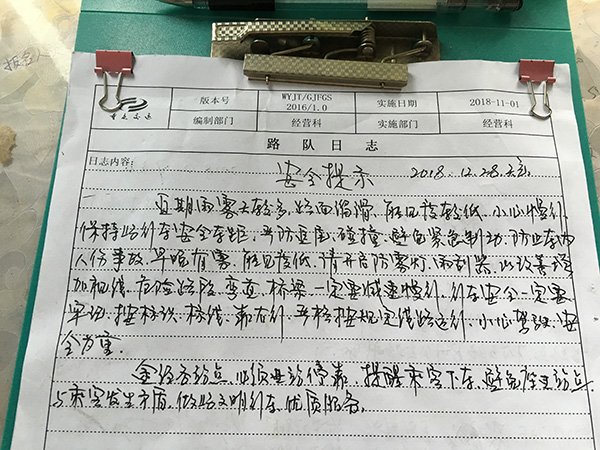 版本号 WYJT/GJFGS 2016/1.0 实施日期 2018-11-01
重庆交运 编制部门 经营科 实施部门 经营科
路队日志
日志内容:
安全提示 2018.12.28.
近期雨雾天较多,路面湿滑,能见度较低,小心慢行,
保持好行车安全车距,严防追尾,碰撞,避免紧急制动,防止车内
人伤事故,早晚有雾,能见度低,请开启防雾灯,雨刮器,以改善
加视线,危险路段,弯道,桥梁一定要减速慢行,行车安全一定要
牢记,按标识,标线,靠右行,严格按规定线路运行,小心驾驶,安
全为重。
途经各站点,必须进站停靠,提醒乘客下车,避免
与乘客发生矛盾,做好文明行车,优质服务。